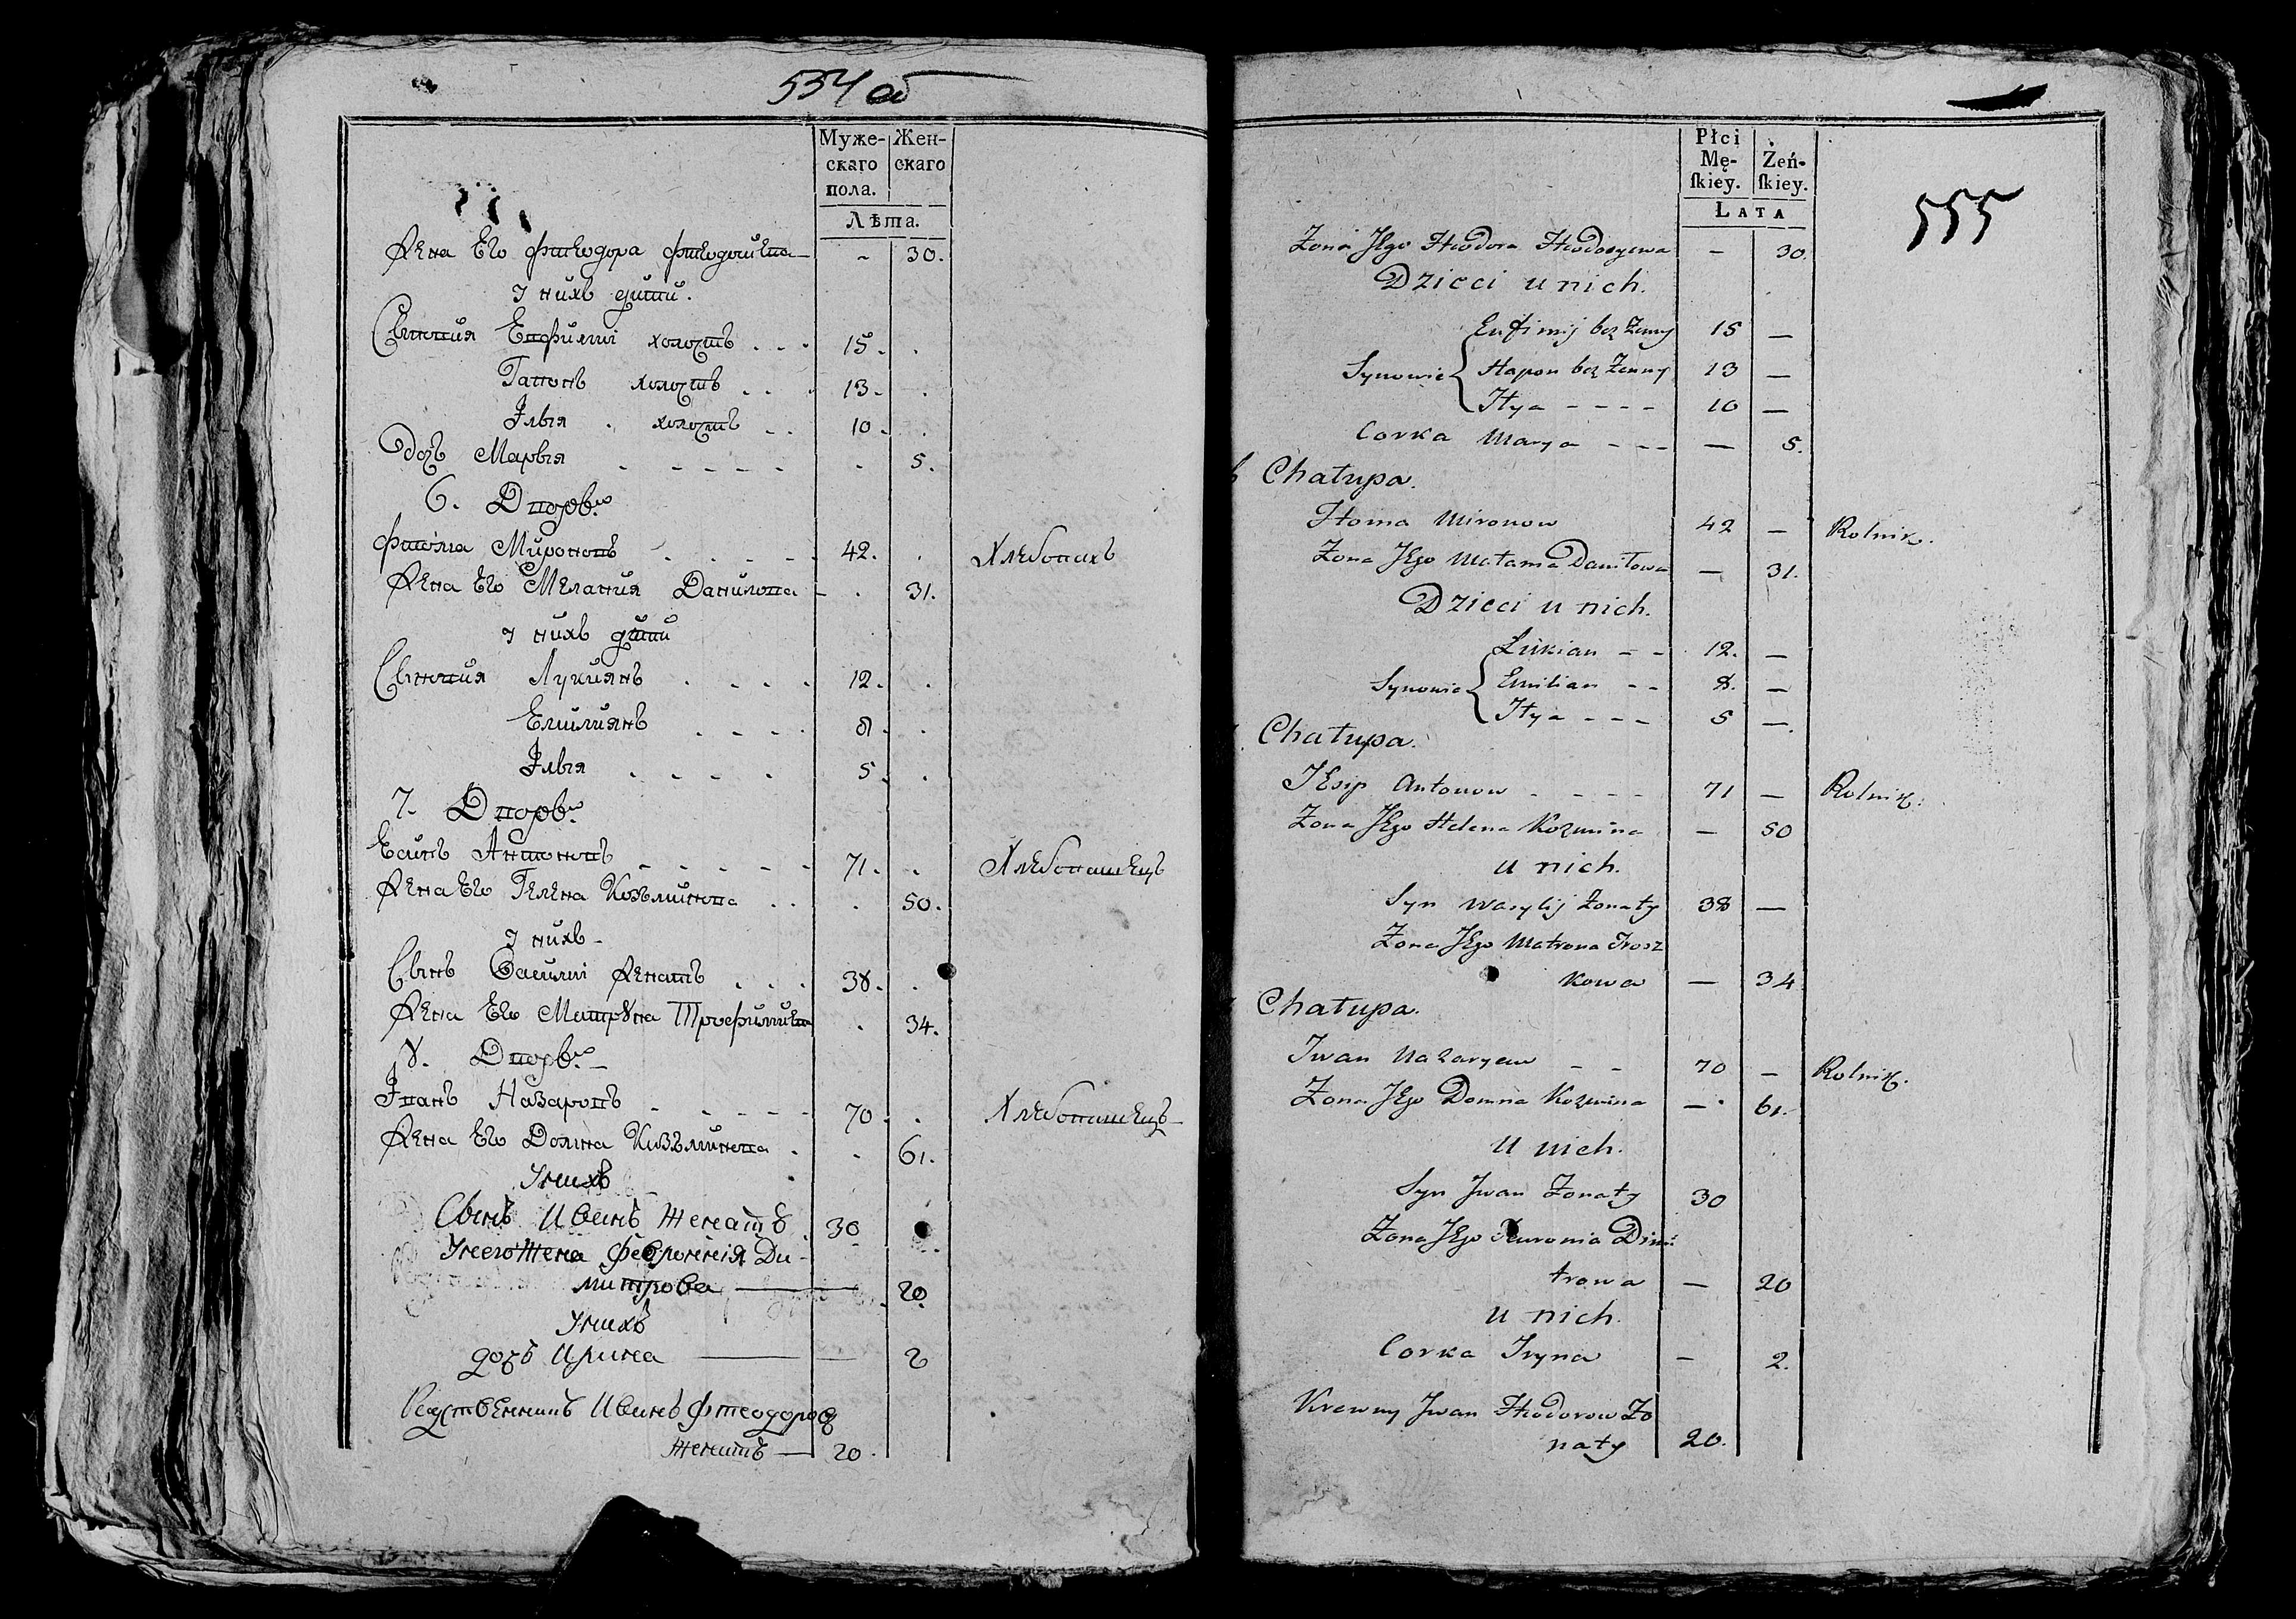 534 об
Муже-
скаго
пола.
Жен-
скаго
Лѣта.
Жена Его Фтеодора Фтеодосиева - 30.
У нихъ дѣти.
Сыновия Евфимий холостъ . . . 15.
Гапонъ холостъ . . . 13.
Илья . холостъ . . 10.
Дочъ Марья . - - - - - 5.
6. Дворъ.
Фтома Мироновъ . . . . . 42. Хлебопахъ
Жена Его Мелания Данилова - . 31.
У нихъ дѣти
Сыновия Лукиянъ . . . . 12.
Емилиянъ . . . . 8.
Илья . . . . 5.
7. Дворъ.
Есипъ Антоновъ - - - - - 71. Хлебопашецъ
Жена Его Гелена Козьминова . . . 50.
У нихъ -
Сынъ Василий женатъ . . . 38.
Жена Его Матруна Трофимиева . 34.
8. Дворъ. -
Иванъ Назаровъ . - - - - 70. Хлебопашецъ -
Жена Его Домна Кизьминова . - 61.
У нихъ
Сынъ Иванъ Женатъ 30
У него Жена Феврониія Ди-
митрова 20.
У нихъ
дочъ Ирина 2
Родственникъ Иванъ Фтеодоровъ
Женатъ — 20.
555
Płci
Mę-
ſkiey.
Żeń-
ſkiey.
Lata
Żona Jego Fteodora Fteodosyewa — 30.
Dzieci u nich.
Eufimij bez Żenny 15 —
Synowie Hapon bez Żenny 13 —
Ilya - - - - 10 —
Corka Marya - - - — 5.
Chałupa.
Ftoma Mironow 42 — Rolnik.
Żona Jego Małania Daniłowa — 31.
Dzieci u nich.
Łukian - - 12. —
Synowie Emilian - - 8. —
Ilya - - - 5 —
Chałupa.
JEsip Antonow - - - - 71 — Rolnik.
Żona Jego Helena Kozmina — 50
u nich.
Syn Wasylij Żonaty 38 —
Żona Jego Matrona Trosz
kowa — 34
Chałupa.
Jwan Nazaryew - - 70 — Rolnik.
Żona Jego Domna Kozmina — 61.
U nich.
Syn Jwan Żonaty 30
Żona Jego Fewronia Dimi
trowa — 20
u nich.
Corka Iryna — 2.
Krewny Jwan Fteodorow Żo
naty 20.